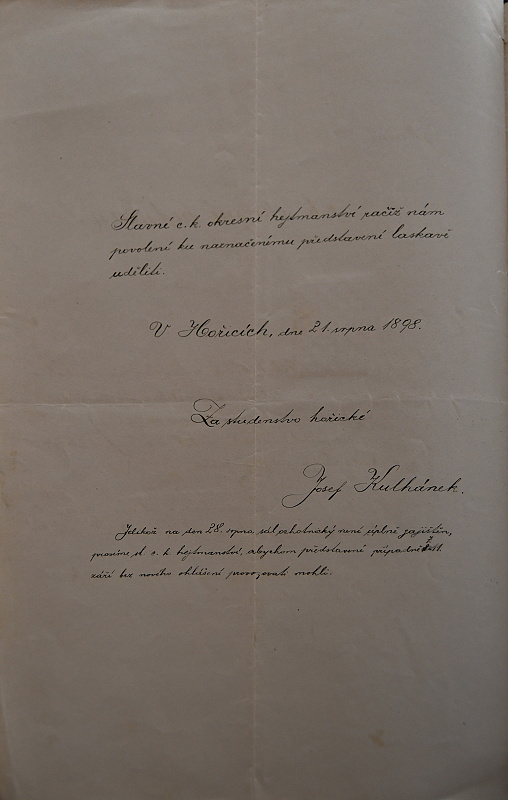 Slavné c. k. okresní hejtmanství račiž nám
povolení ku naznačenému představení laskavě
uděliti.
V Hořicích, dne 21. srpna 1898.
Za studenstvo hořické
Josef Kulhánek.
Jelikož na den 28. srpna sál ochotnický není úplně zajištěn,
prosíme sl. c. k. hejtmanství, abychom představení případně
září bez nového ohlášení provozovati mohli.